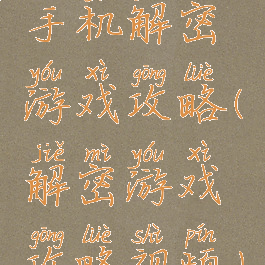 手机解密
yóu xì gōng lüè
游戏攻略(
jiě mì yóu xì
解密游戏
gōng lüè shì pín
攻略视频)